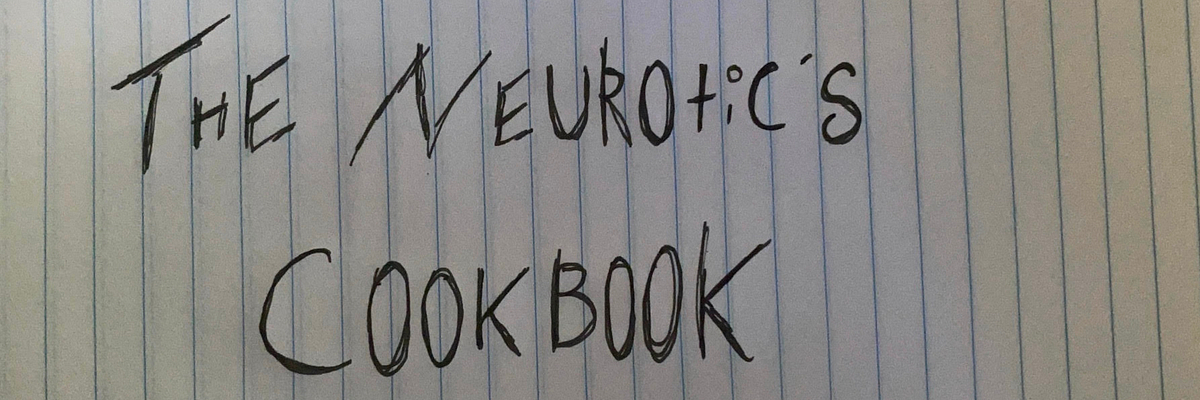 THE NEUROtiC'S
COOKBOOK